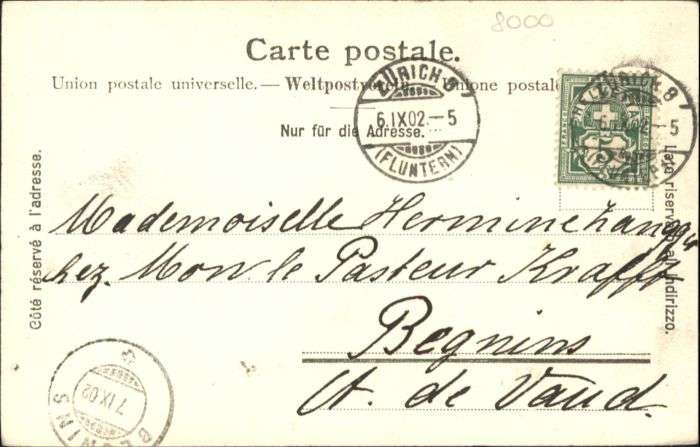 8000
Carte postale.
Union postale universelle. — Weltpostverein — Unione postale
Nur für die Adresse.
ZÜRICH 8
6.IX.02.–5
(FLUNTERN)
ZÜRICH 8
6.IX.02.–5
HELVETIA
5
Côté réservé à l'adresse.
Lato riservato all'indirizzo.
Mademoiselle Hermine
chez. Mon. le Pasteur Krafft
Begnins
Ct. de Vaud.
BEGNINS
7 IX 02